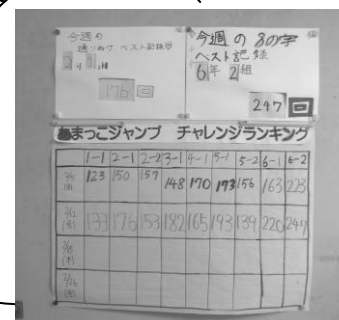 今週の
通りぬけ ベスト記録
176 回
今週の 8の字
ベスト記録
6年 2組
247 回
あまっこジャンプ チャレンジランキング
1-1 2-1 2-2 3-1 4-1 5-1 5-2 6-1 6-2
123 150 157 148 170 173 156 163 223
133 176 153 182 165 193 139 220 247